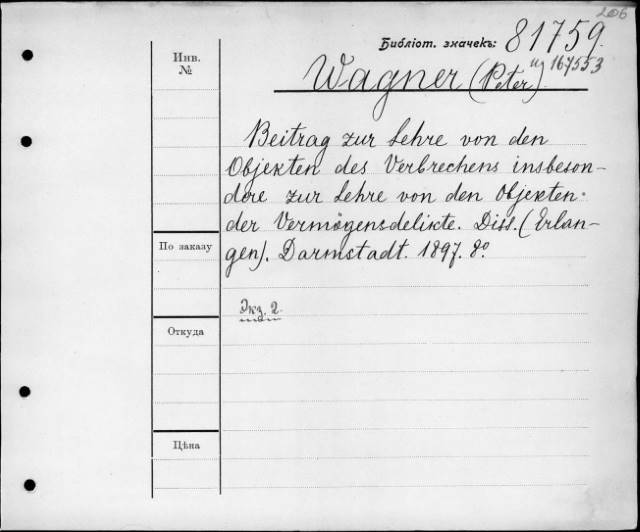 206
Библіот. значекъ: 81759.
Инв.
№
и 167553
Wagner (Peter).
Beitrag zur Lehre von den
Objekten des Verbrechens insbeson-
dere zur Lehre von den Objekten
der Vermögensdelikte. Diss. (Erlan-
gen). Darmstadt. 1897. 8º
По заказу
Экз. 2.
Откуда
Цѣна